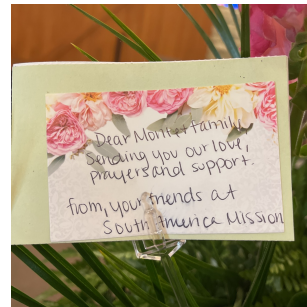 Dear Montet family,
Sending you our love,
prayers and support.
from, your friends at
South America Mission